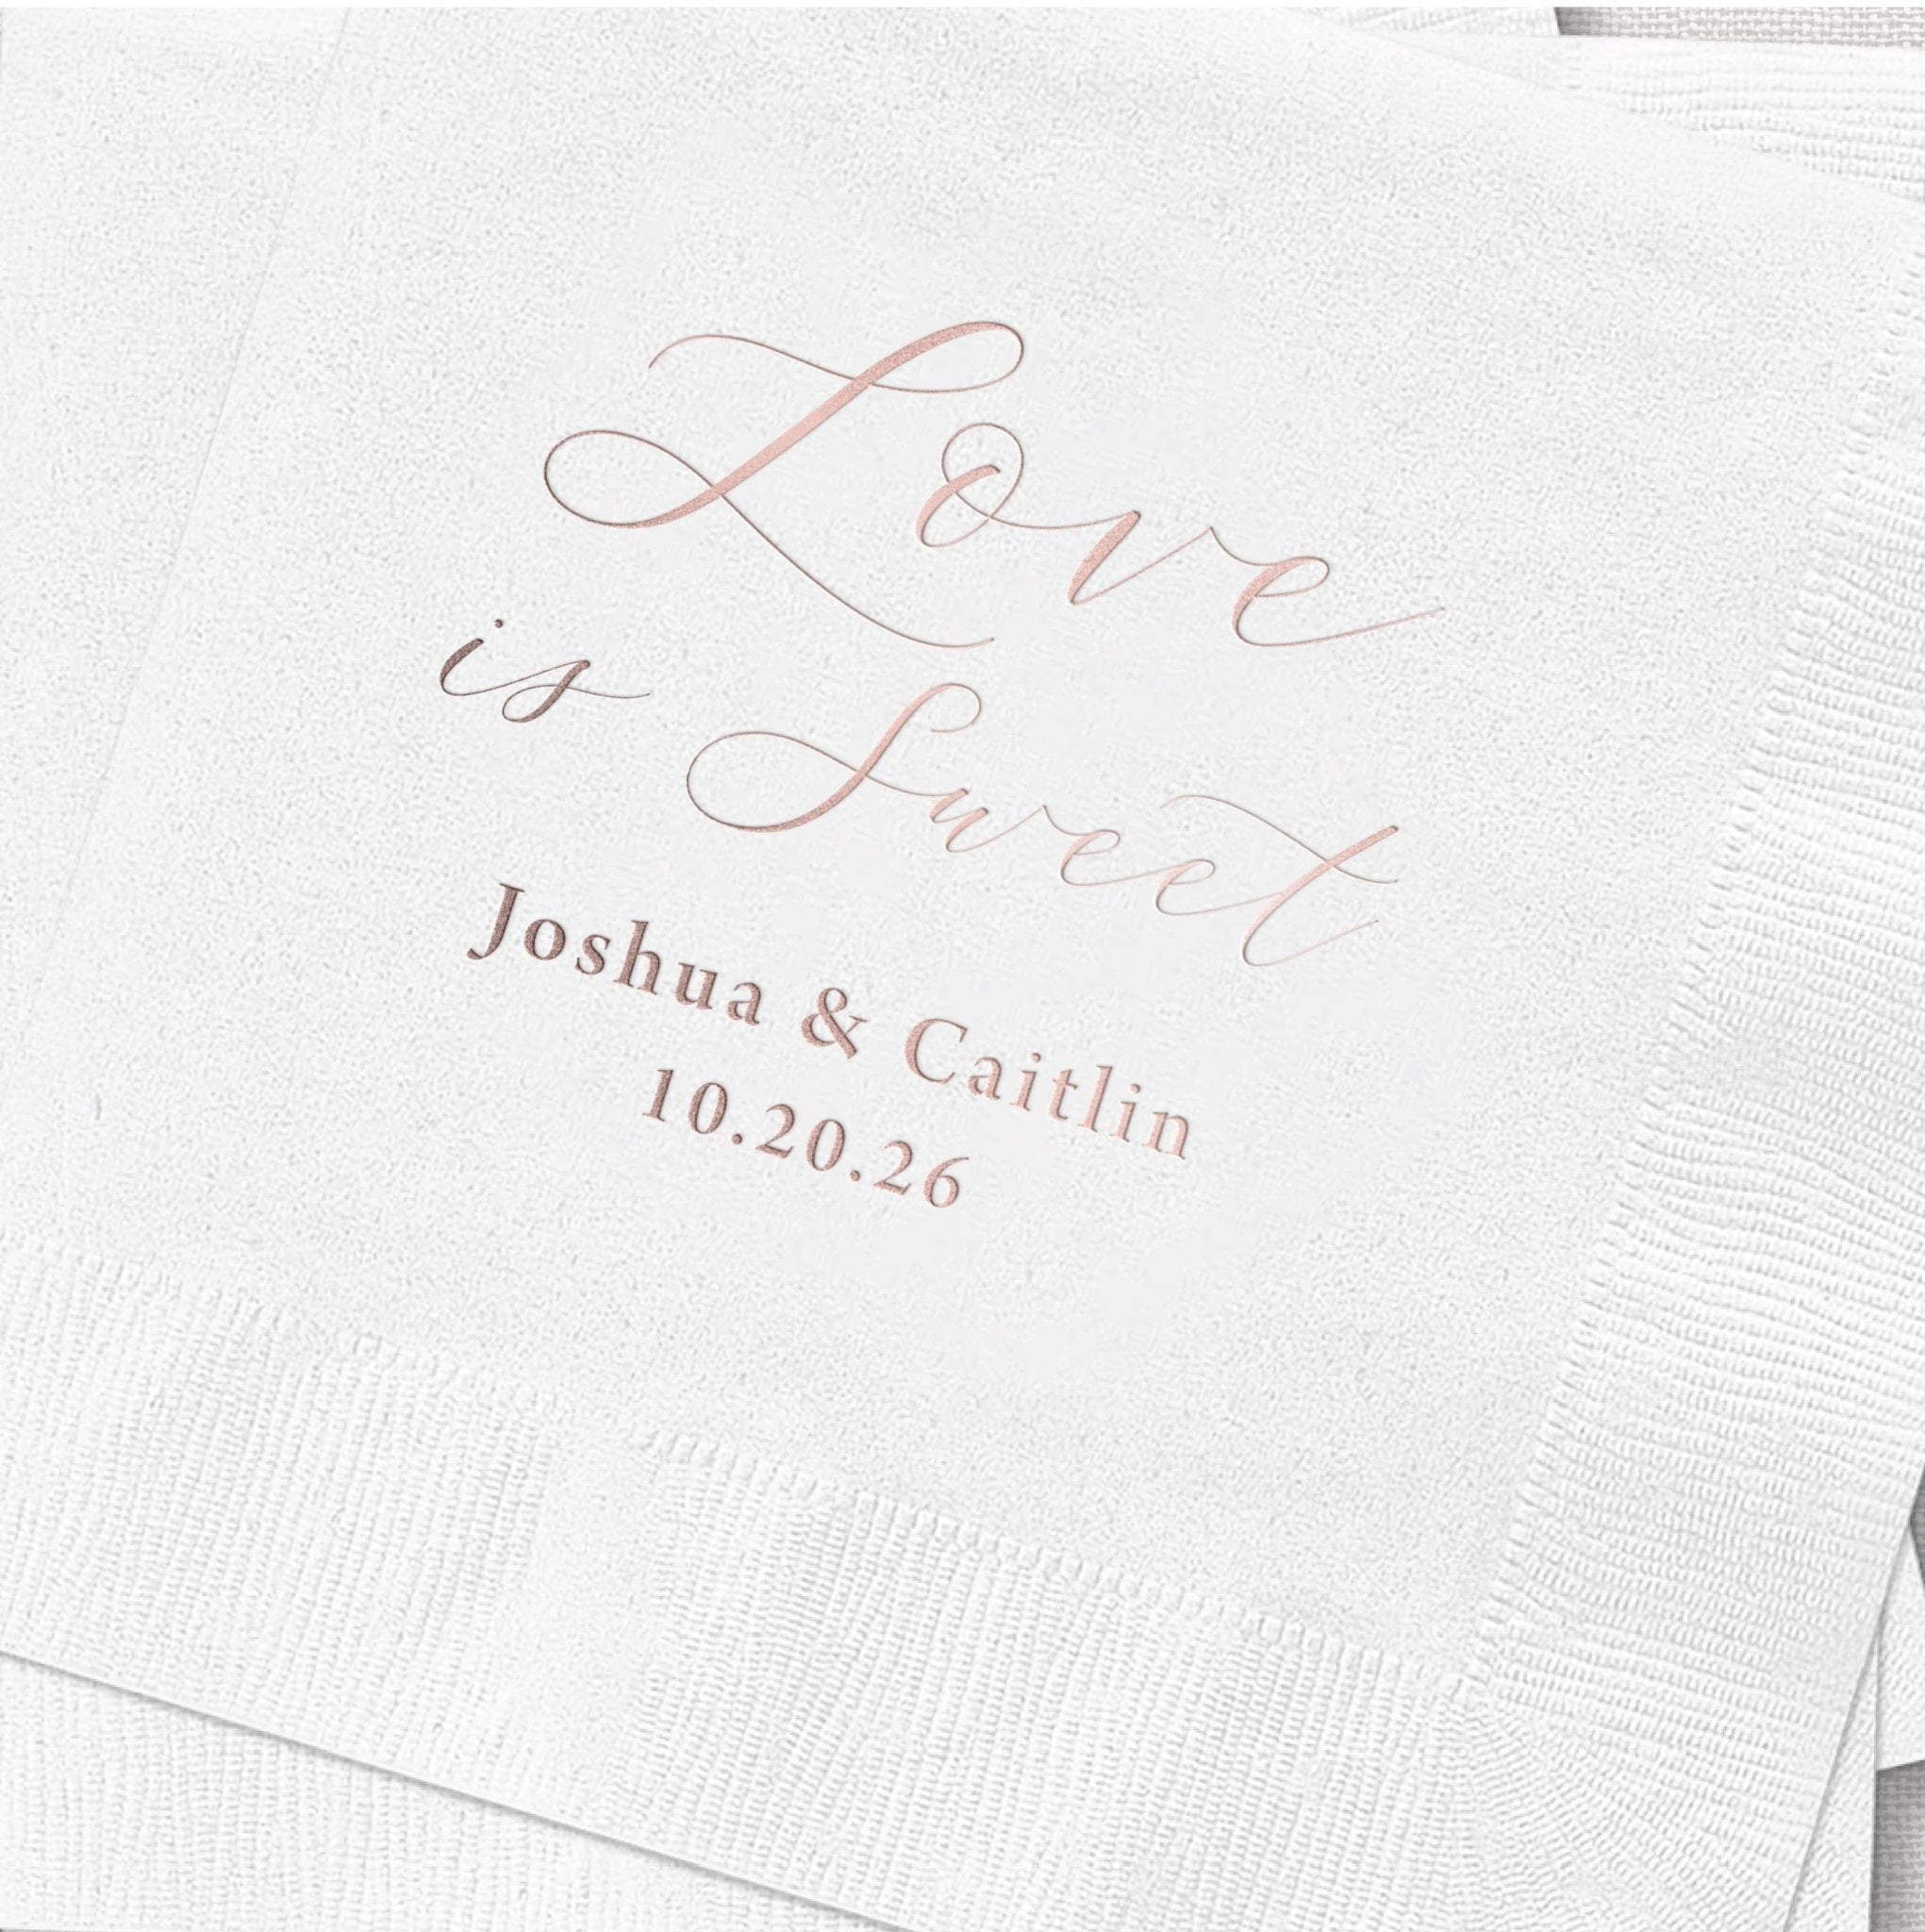 Love
is Sweet
Joshua & Caitlin
10.20.26